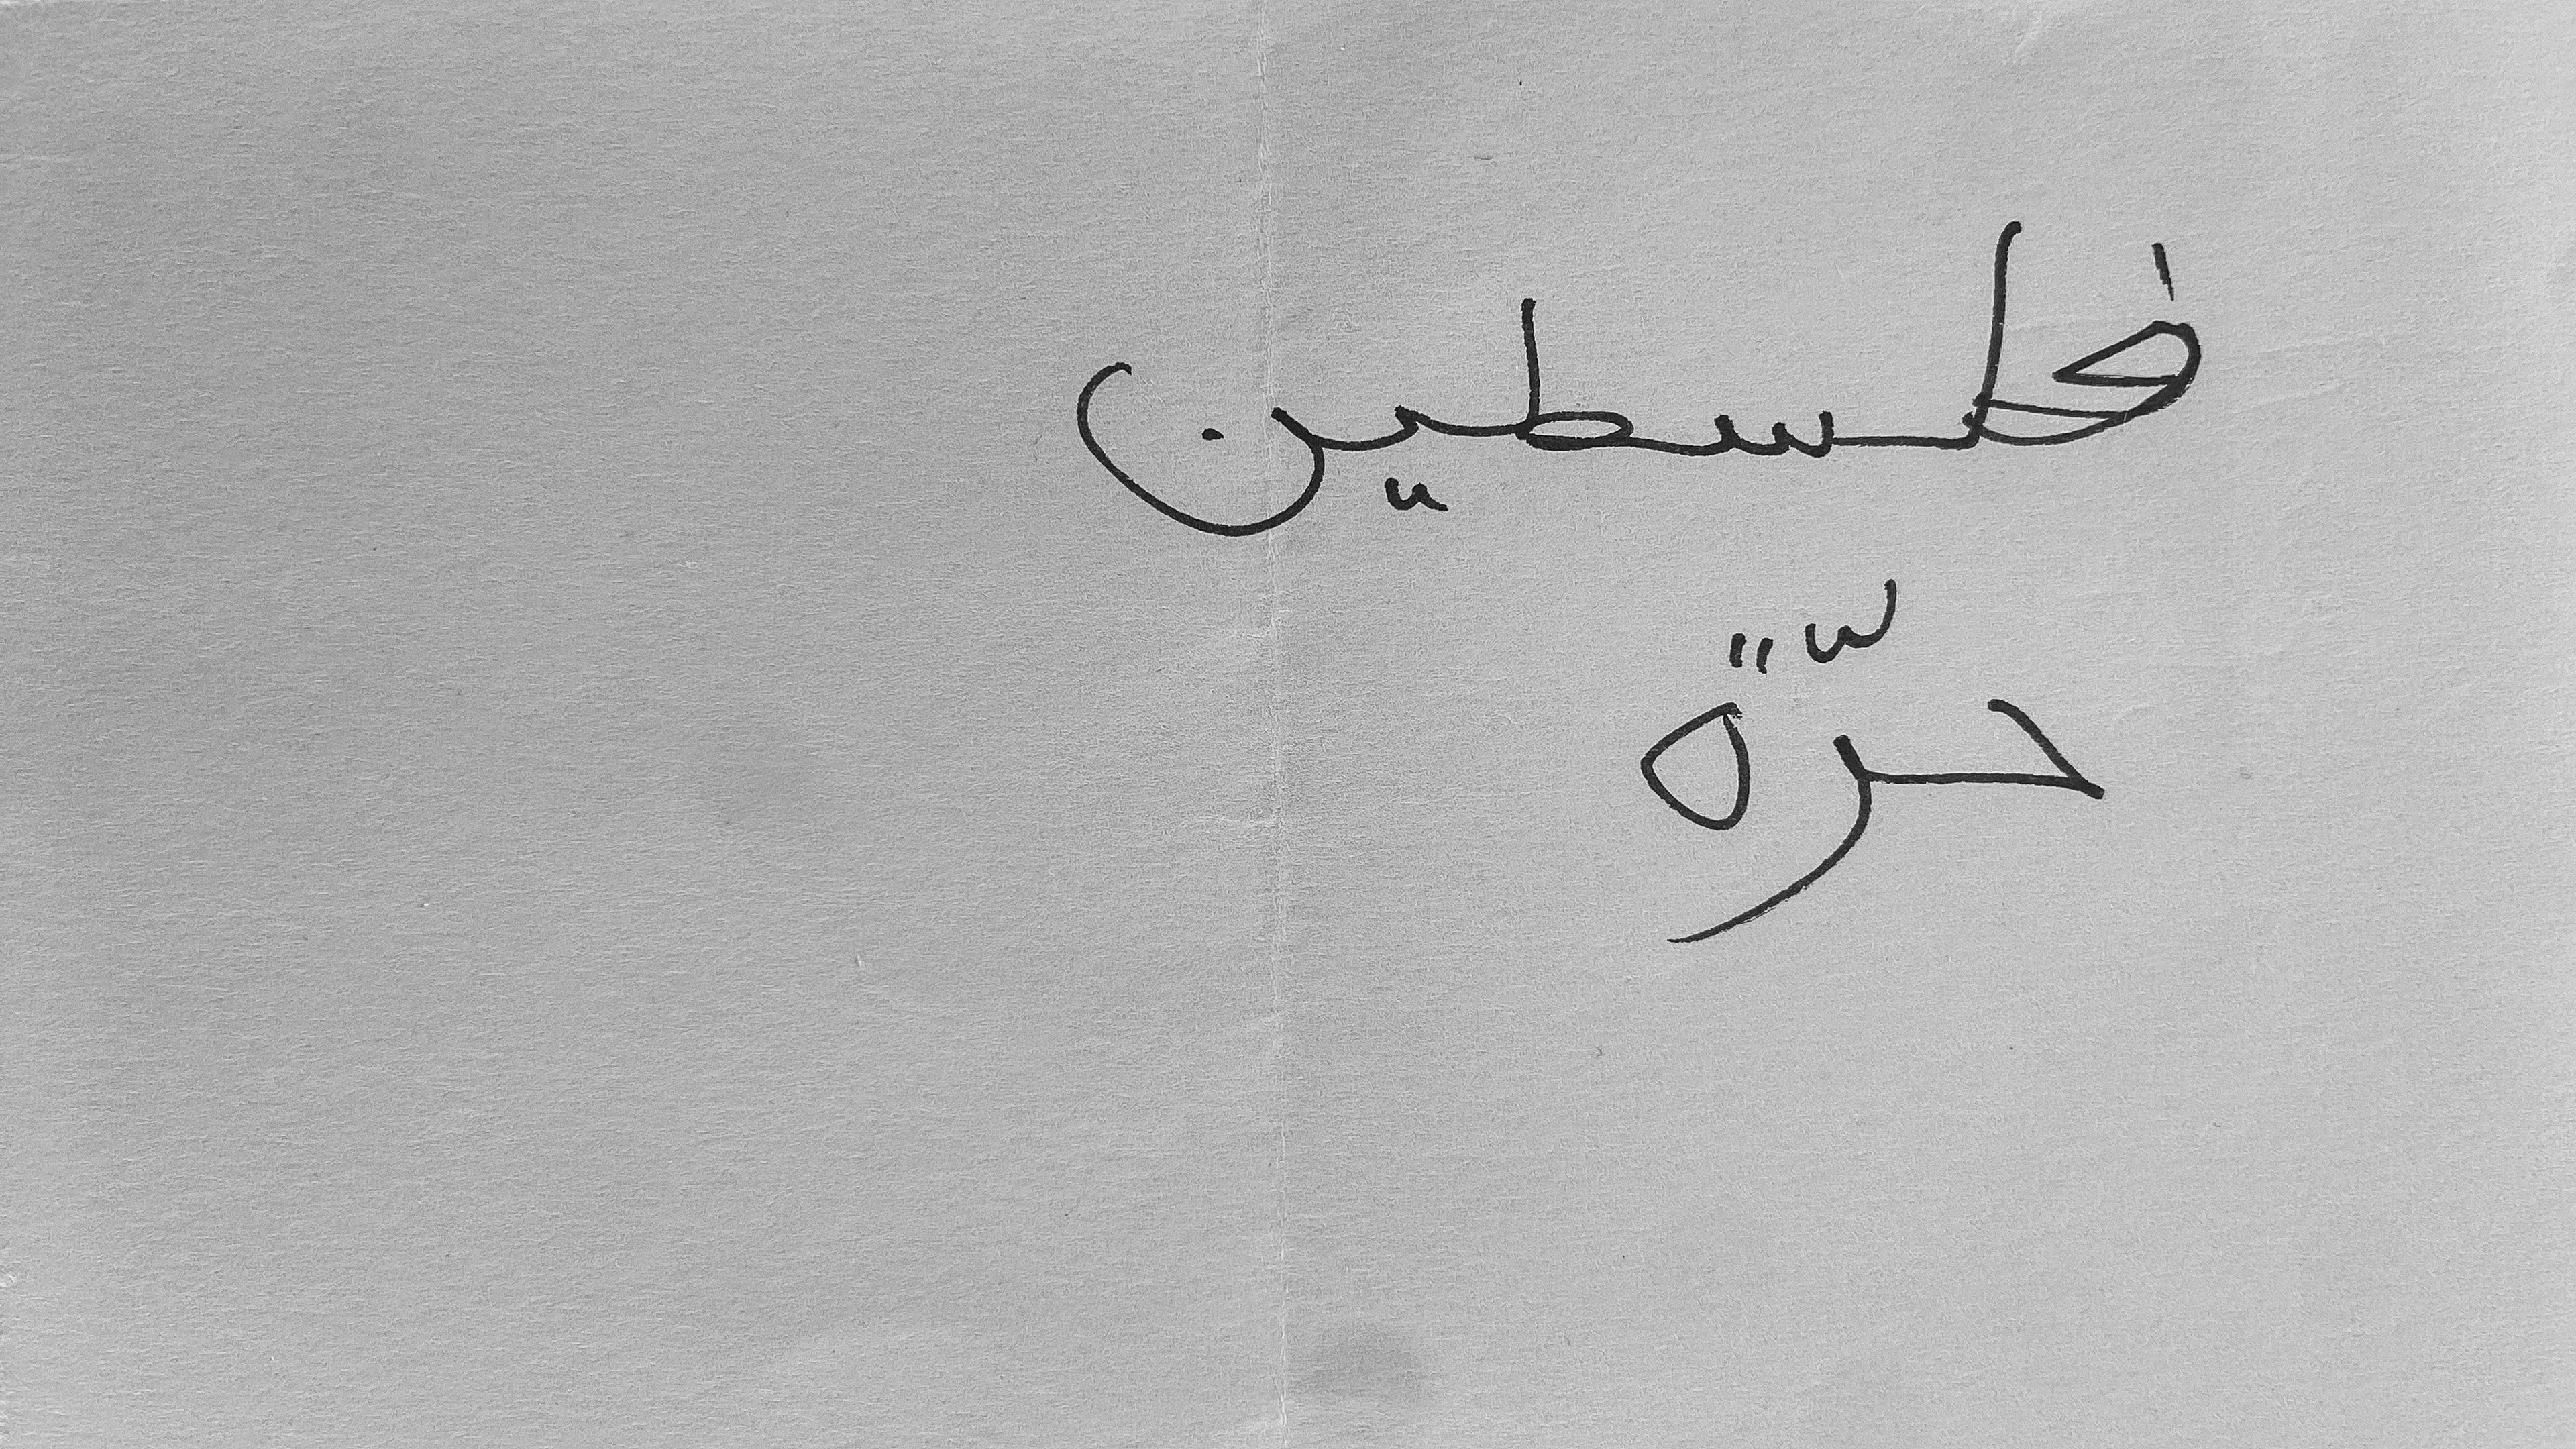 فلسطين
حرّة